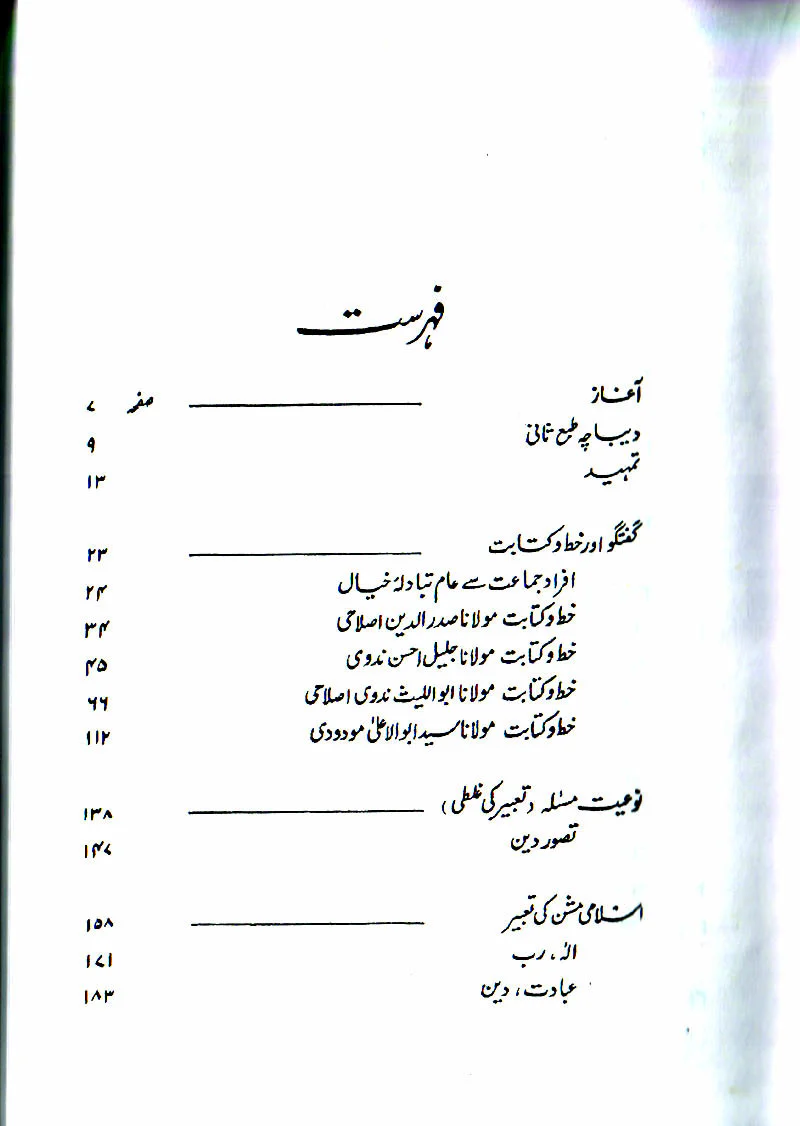 فہرست
آغاز ـــــــــ صفحہ ۷
دیباچہ طبع ثانی ۹
تمہید ۱۳
گفتگو اور خط و کتابت ـــــــــ ۲۳
افراد جماعت سے عام تبادلۂ خیال ۲۴
خط و کتابت مولانا صدر الدین اصلاحی ۳۴
خط و کتابت مولانا جلیل احسن ندوی ۴۵
خط و کتابت مولانا ابو اللیث ندوی اصلاحی ۶۶
خط و کتابت مولانا سید ابو الاعلیٰ مودودی ۱۱۲
نوعیت مسئلہ (تعبیر کی غلطی) ـــــــــ ۱۳۸
تصور دین ۱۴۷
اسلامی مشن کی تعبیر ـــــــــ ۱۵۸
الٰہ، رب ۱۷۱
عبادت، دین ۱۸۳